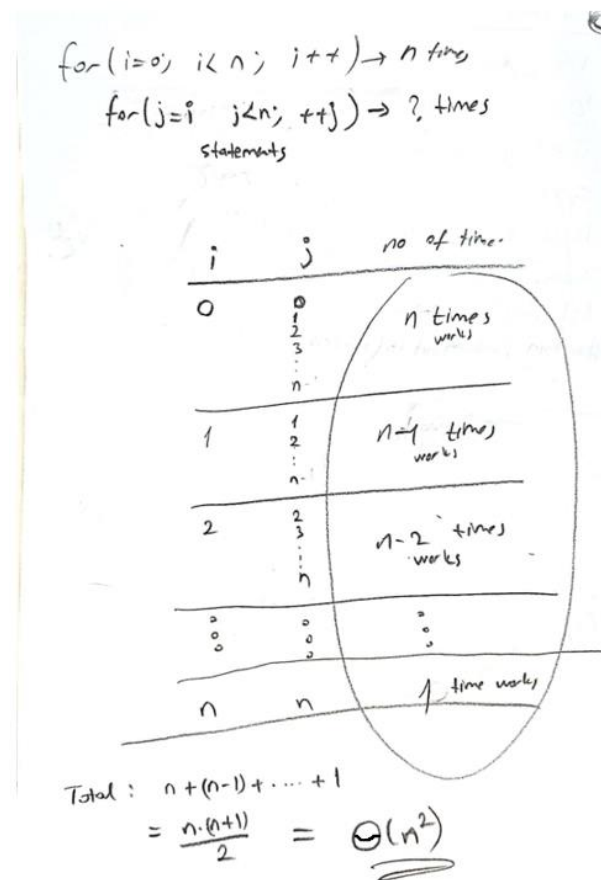 for(i=0; i<n; i++) → n times
for(j=i j<n; ++j) → ? times
statements
i j no of time.
0 0 n times
1 works
2
3
⋮
n
1 1 n-1 times
2 works
⋮
n
2 2 n-2 times
3 works
⋮
n
n n 1 time works
Total : n+(n-1)+ ..... +1
= n.(n+1)/2 = Θ(n²)